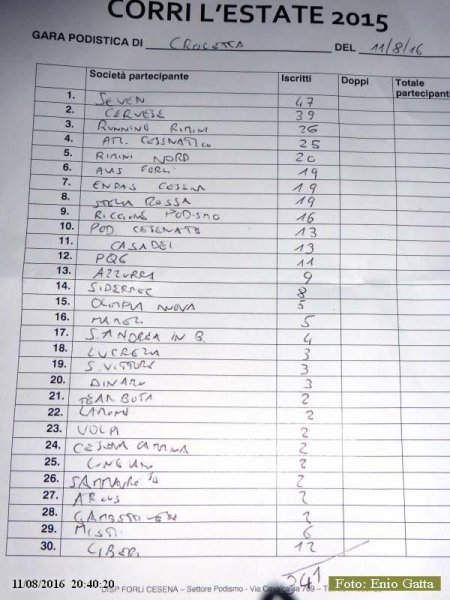 CORRI L'ESTATE 2015
GARA PODISTICA DI CROCETTA DEL 11/8/16
Società partecipante Iscritti Doppi Totale partecipanti
1. SEVEN 47
2. CERVESE 39
3. RUNNING RIMINI 26
4. ATL. CESENATICO 25
5. RIMINI NORD 20
6. AVIS FORLI' 19
7. ENDAS CESENA 19
8. STELLA ROSSA 19
9. RICCIONE PODISMO 16
10. POD CESENATE 13
11. CASADEI 13
12. PQG 11
13. AZZURRA 9
14. SIDERMEC 8
15. OLIMPIA NUOVA 5
16. 5
17. S. ANDREA IN B. 4
18. LUCREZIA 3
19. S. VITTORE 3
20. DINAMO 3
21. TEAM BOTA 2
22. LAMONE 2
23. VOLA 2
24. CESENA CAMMINA 2
25. 2
26. 2
27. 2
28. 2
29. MISTI 6
30. LIBERI 12
341
UISP FORLÌ CESENA – Settore Podismo - Via
11/08/2016 20:40:20
Foto: Enio Gatta